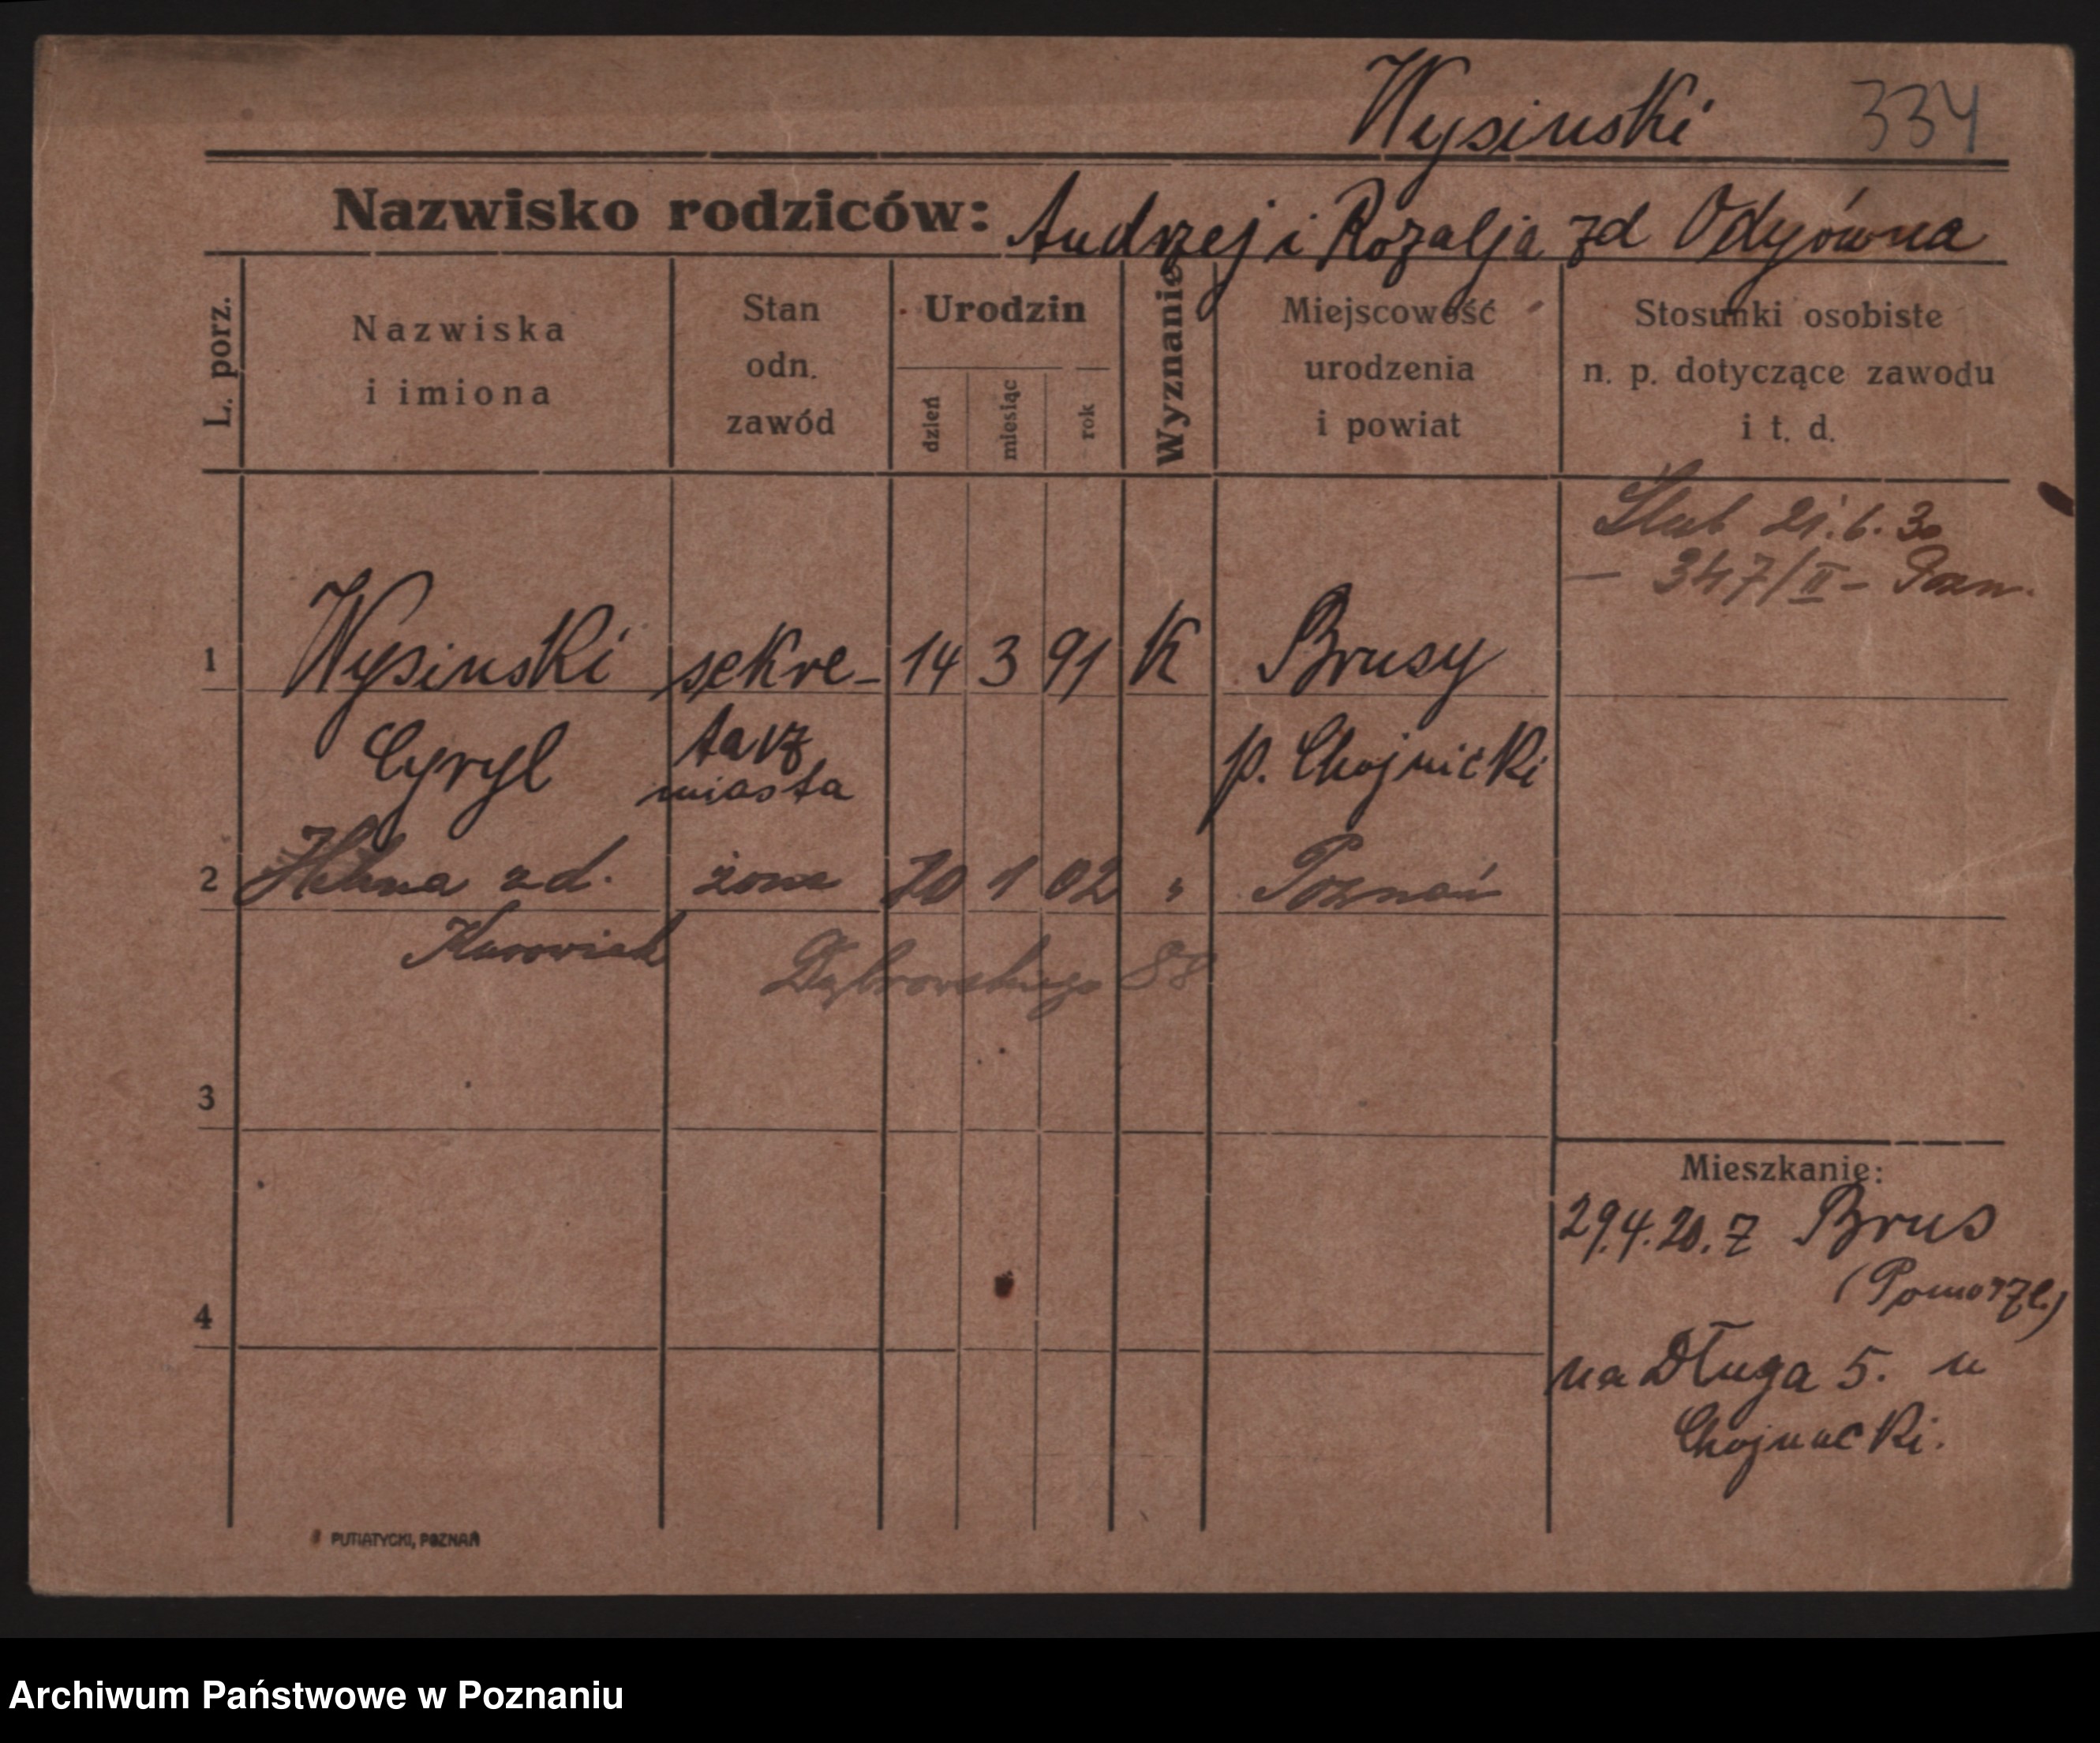 Wysinski 334
Nazwisko rodziców: Andrzej i Rozalja zd Odyówna
L. porz.
Nazwiska
i imiona
Stan
odn.
zawód
Urodzin
dzień
miesiąc
rok
Wyznanie
Miejscowość
urodzenia
i powiat
Stosunki osobiste
n. p. dotyczące zawodu
i t. d.
Ślub 21.6.30
— 347/II – Pozn.
1 Wysinski sekre- 14 3 91 K Brusy
Cyryl tarz p. Chojnicki
miasta
2 Helena zd. żona 20 1 02 " Poznań
Kurowiak Dąbrowskiego 88
3
Mieszkanie:
29.4.20. z Brus
(Pomorze)
4
na Długa 5. u
Chojnacki.
PUTIATYCKI, POZNAŃ
Archiwum Państwowe w Poznaniu